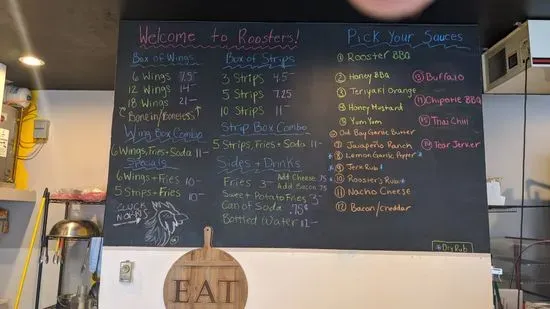 Welcome to Roosters!
Box of Wings
6 Wings 7.5-
12 Wings 14-
18 Wings 21-
(Bone in/Boneless)
Wing Box Combo
6 Wings, Fries + Soda 11-
Specials
6 Wings + Fries 10-
5 Strips + Fries 10-
CLUCK
Box of Strips
3 Strips 4.5-
5 Strips 7.25
10 Strips 11-
Strip Box Combo
5 Strips, Fries + Soda 11-
Sides + Drinks
Fries 3- Add Cheese .75
Add Bacon .75
Sweet Potato Fries 3-
Can of Soda .75¢
Bottled Water
Pick Your Sauces
① Rooster BBQ
② Honey BBQ
③ Teriyaki Orange
Honey Mustard
Yum Yum
Old Bay Garlic Butter
⑦ Jalapeño Ranch
*⑧ Lemon Garlic Pepper*
*⑨ Jerk Rub*
*⑩ Rooster's Rub*
⑪ Nacho Cheese
⑫ Bacon/cheddar
⑬ Buffalo
⑭ Chipotle BBQ
⑮ Thai Chili
Tear Jerker
*Dry Rub
EAT